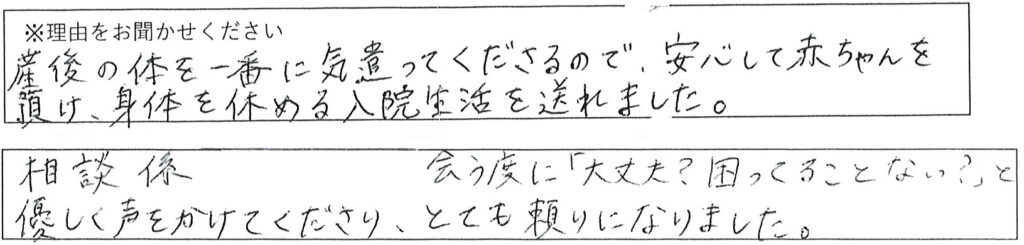 ※理由をお聞かせください
産後の体を一番に気遣ってくださるので、安心して赤ちゃんを
預け、身体を休める入院生活を送れました。
相談係 会う度に「大丈夫？困ってることない？」と
優しく声をかけてくださり、とても頼りになりました。